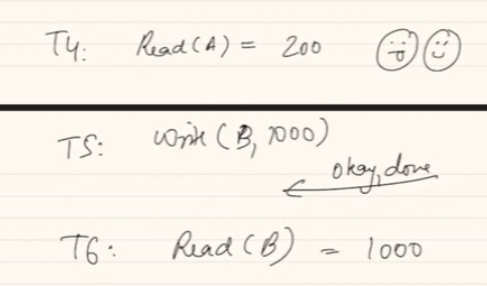 T4: Read(A) = 200
T5: Write(B, 1000)
okay, done
T6: Read(B) = 1000